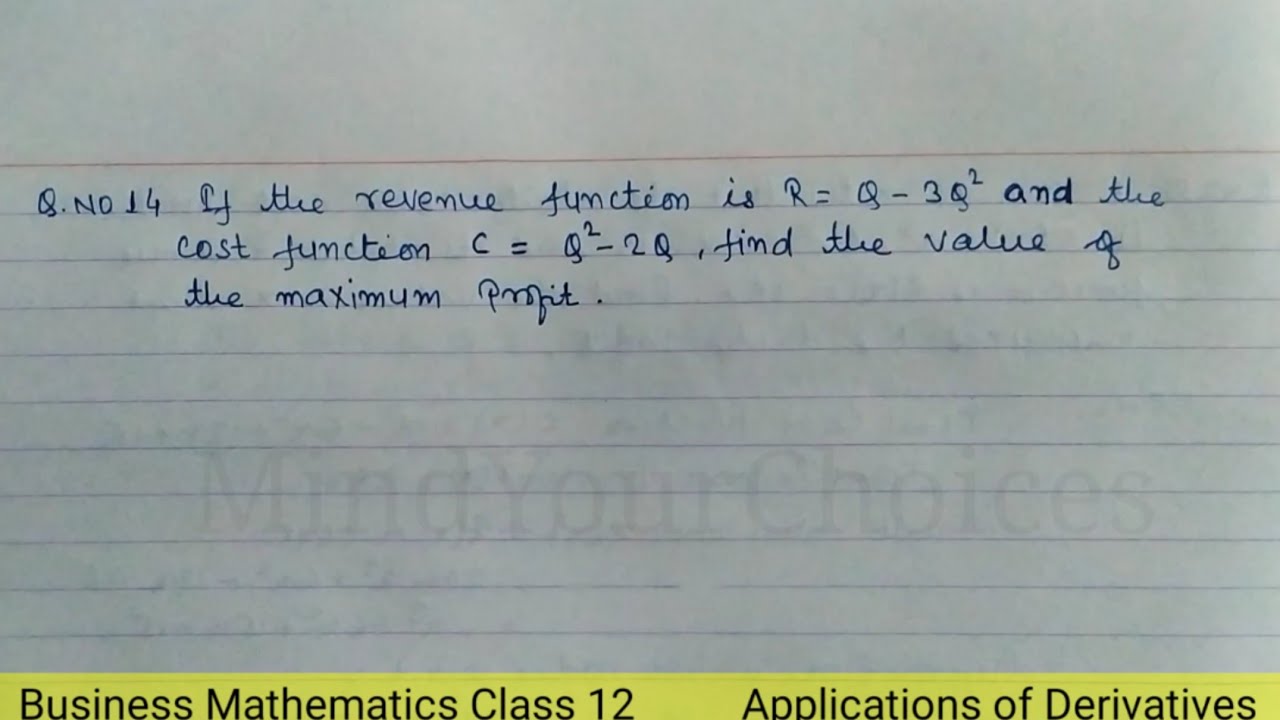 Q.NO 14 If the revenue function is R = Q - 3Q² and the
cost function C = Q² - 2Q, find the value of
the maximum Profit.
MindYourChoices
Business Mathematics Class 12 Applications of Derivatives